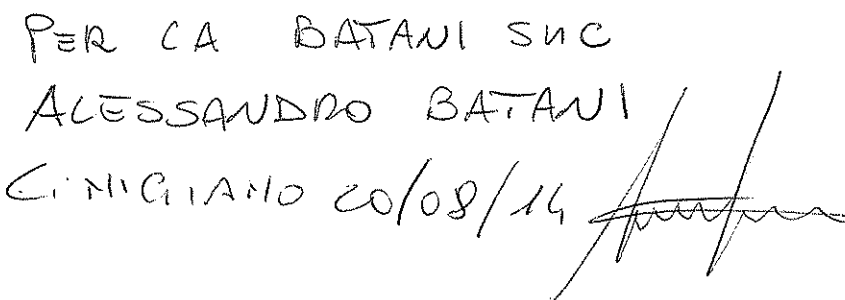 PER LA BATANI SNC
ALESSANDRO BATANI
CINIGIANO 20/08/14